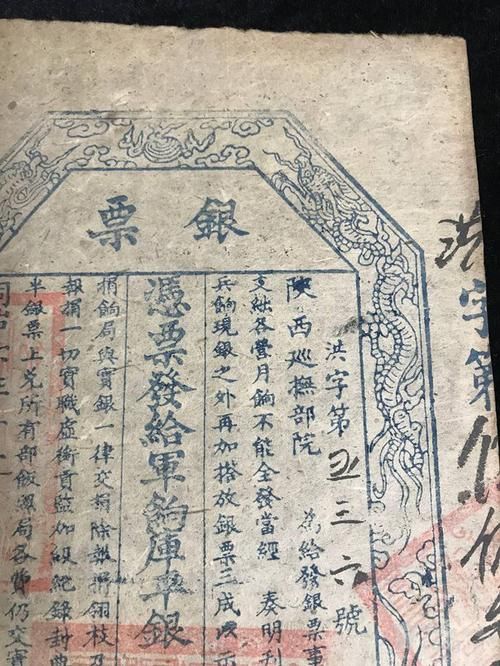 銀票
洪字第伍佰
洪字第五三六號
陝西巡撫部院 為給發銀票事
支絀各營月餉不能全發當經 奏明刋
兵餉現銀之外再加搭放銀票二成以示
憑票發給軍餉庫平銀
捐餉局與實銀一律交捐除報捐翎枝及
報捐一切實職虛銜貢監加級紀錄封典
半銀票上兌所有部飯照局各費仍交實
同治